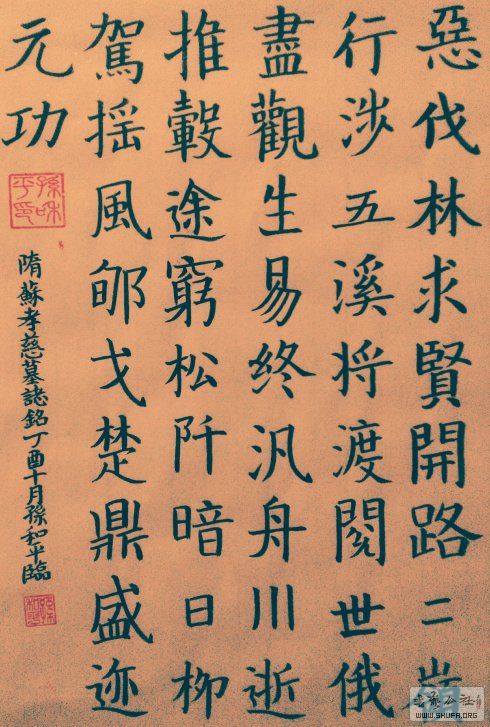 惡伐林求賢開路二
行涉五溪将渡閱世俄
盡觀生易終汎舟川逝
推轂途窮松阡暗日柳
駕揺風郇戈楚鼎盛迹
元功
孫和平印
隋蘇孝慈墓誌銘丁酉十月孫和平臨
书法公社
WWW.SHUFA.ORG